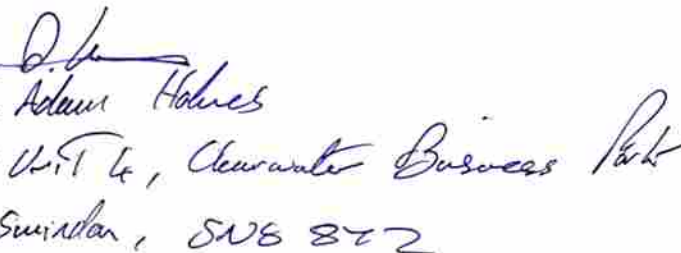 Adam Holmes
Unit 4, Clearwater Business Park
Swindon, SN5 8YZ